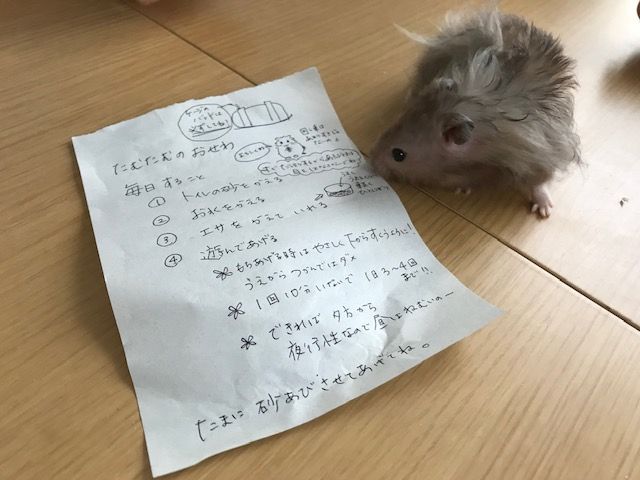 ケージの
ハッチは
必ずしてね!
たむたむの おせわ
毎日 すること
① トイレの砂をかえる
② お水をかえる
③ エサを かえて いれる
④ 遊んであげる
※ もちあげる時は やさしく 下からすくうように!
うえから つかんではダメ
※ 1回 10分いないで 1日3〜4回
まで!!
※ できれば 夕方から
夜行性なので 昼はねむいの〜
たまに 砂あびさせてあげてね。